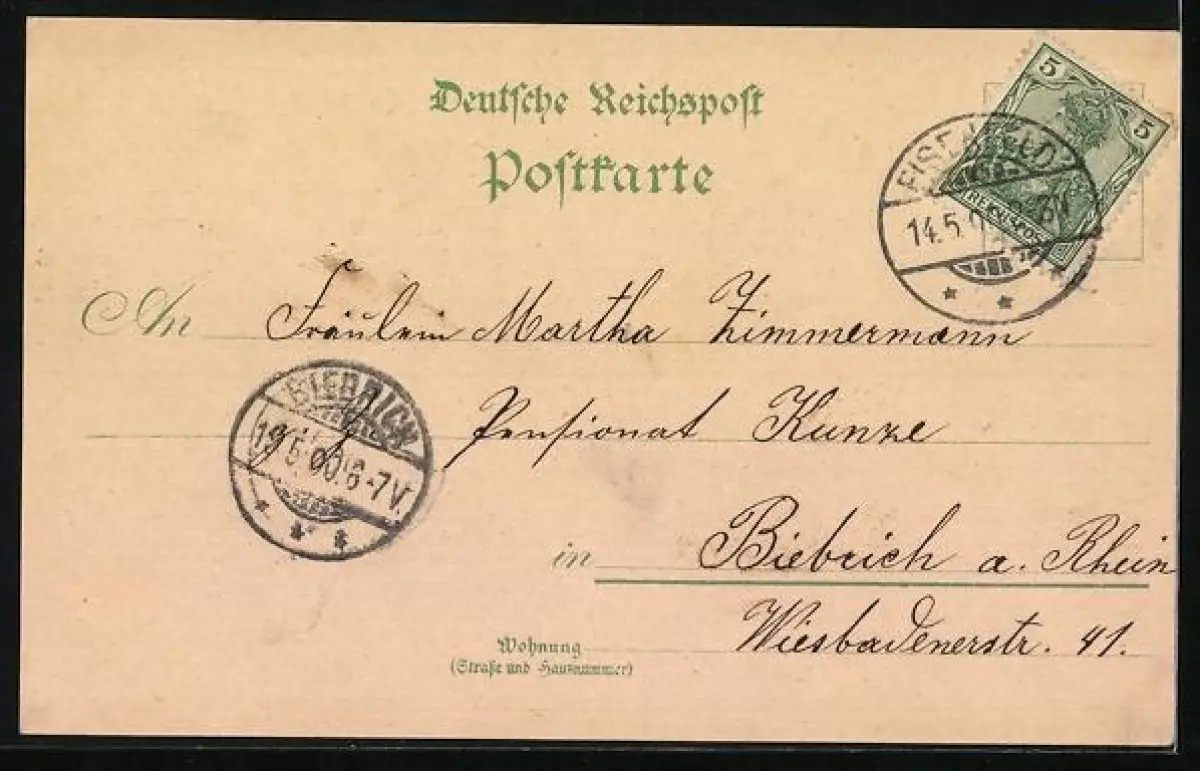 Deutsche Reichspost
Postkarte
5
5
REICHSPOST
14.5.
An Fräulein Martha Zimmermann
BIEBRICH
19.5.00.6-7V.
Pensionat Kunze
in Biebrich a. Rhein
Wiesbadenerstr. 41.
Wohnung
(Straße und Hausnummer)